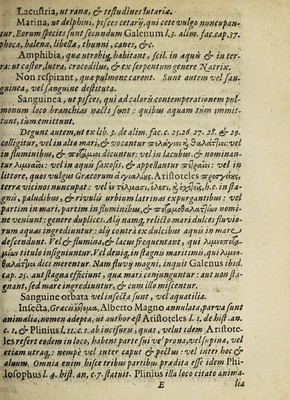 Lacustria, ut ranæ, & testudines lutariæ.
Marina, ut delphini, pisces cetarij, qui cete vulgo nuncupan-
tur. Eorum species sunt secundum Galenum l.3. alim. fac. cap. 37.
phoca, balena, libella, thunni, canes, &c.
Amphibia, quæ utrobiq; habitant, scil. in aquis & in ter-
ra: ut castor, lutra, crocodilus, & ex serpentum genere Natrix.
Non respirant, quæ pulmone carent. Sunt autem vel san-
guinea, vel sanguine destituta.
Sanguinea, ut pisces, qui ad caloris contemperationem pul-
monum loco branchias nacti sunt: quibus aquam tum immit-
tunt, tum emittunt.
Degunt autem, ut ex lib. 3. de alim. fac. c. 25. 26. 27. 28. & 29.
colligitur, vel in alto mari, & vocantur πελάγιοι ἢ θαλάττιοι: vel
in fluminibus, & ποτάμιοι dicuntur: vel in lacubus, & nominan-
tur λιμναῖοι: vel in aquis saxosis, & appellantur πετραῖοι: vel in
littore, quos vulgus Græcorum αἰγιαλοὺς, Aristoteles προσγείους,
terra vicinos nuncupat: vel in τέλμασι, h.c. in sta-
gnis, paludibus, & rivulis urbium latrinas expurgantibus: vel
partim in mari, partim in fluminibus, & nomi-
ne veniunt: genere duplices. Alij namq; relicto mari dulces fluvio-
rum aquas ingrediuntur: alij contra ex dulcibus aquis in mare
descendunt. Vel & flumina, & lacus frequentant, qui
titulo insigniuntur. Vel deniq; in stagnis maritimis, qui λιμνο-
θαλάττιοι dici merentur. Nam fluvij magni, inquit Galenus ibid.
cap. 25. aut stagna efficiunt, quæ mari conjunguntur: aut non sta-
gnant, sed mare ingrediuntur, & cum illo miscentur.
Sanguine orbata vel insecta sunt, vel aquatilia.
Insecta, Græcis ἔντομα, Alberto Magno annulata, parva sunt
animalia, nomen adepta, ut author est Aristoteles l. 1. de hist. an.
c. 1. & Plinius l. 11. c. 1. ab incisuris, quas, velut idem Aristote-
les refert eodem in loco, habent parte sui vel prona, vel supina, vel
etiam utraq;: nempè vel inter caput & pectus: vel inter hoc &
alvum. Omnia enim hisce tribus partibus prædita esse idem Phi-
losophus l. 4. hist. an. c. 7. statuit. Plinius illa loco citato anima-
E lia